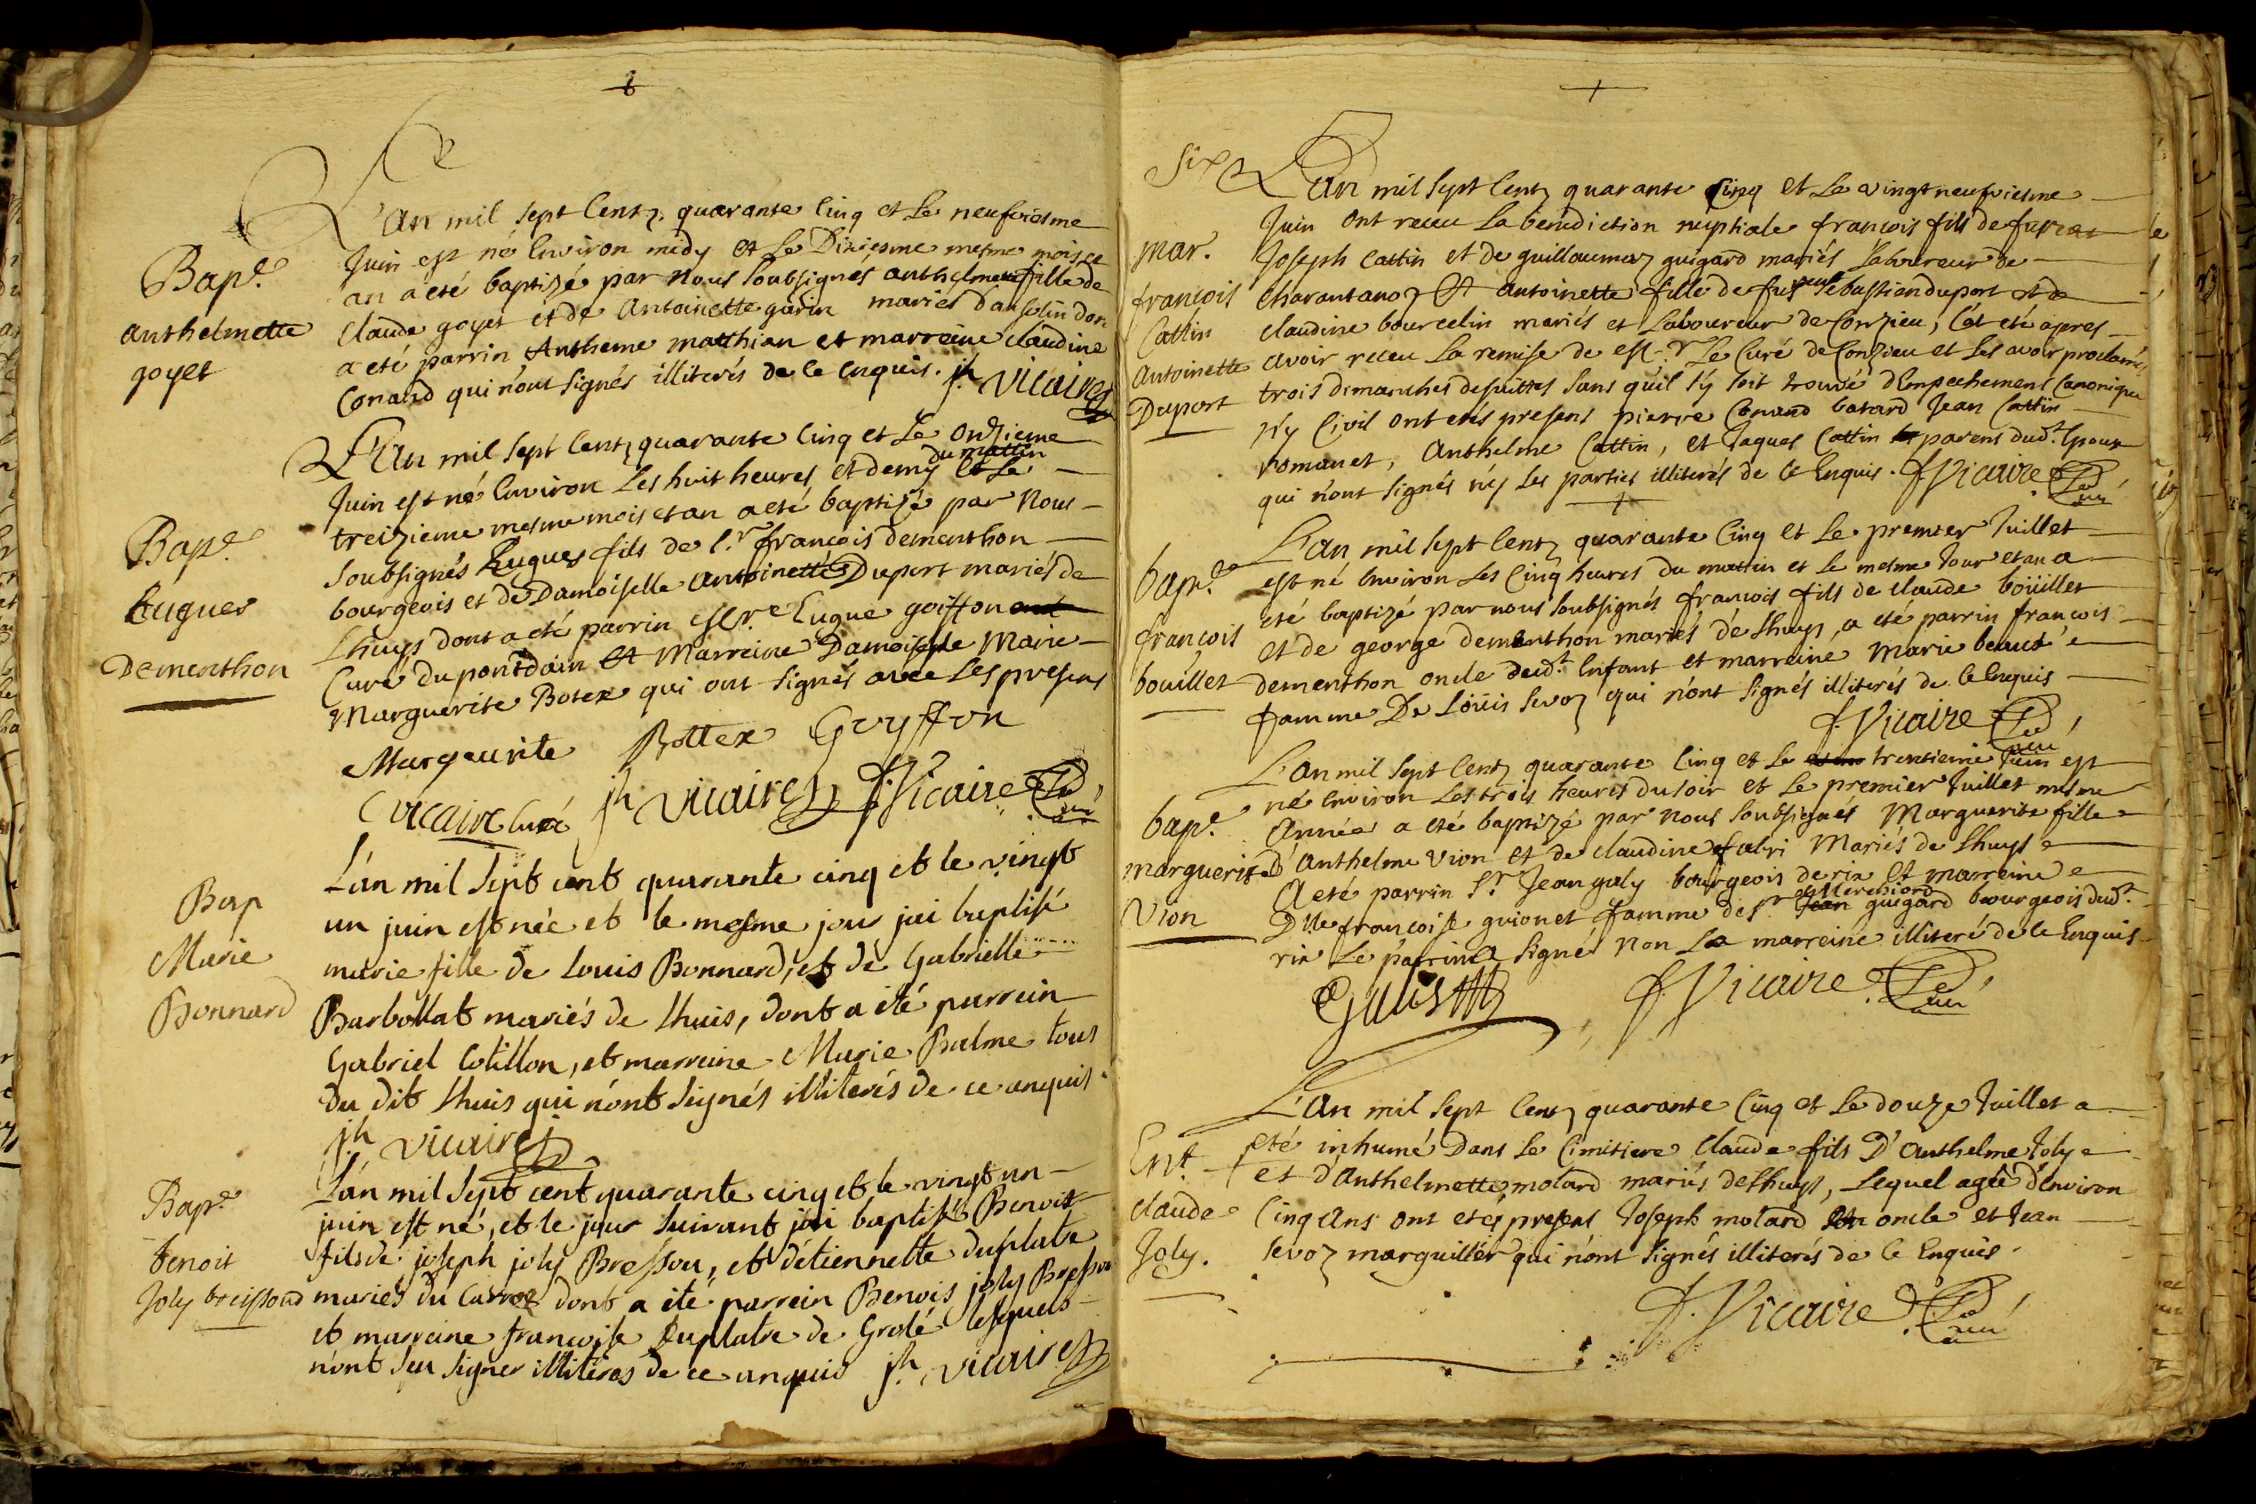 L'an mil sept cent quarante cinq et le neufviesme
Bap.e Juin est né Environ midy et le Dixiesme mesme mois et
an a eté baptizé par Nous soubsignés anthelmette fille de
anthelmette Claude goyet et de antoinette guérin mariés d'ansolin dont
goyet a eté parrin Anthelme matthian et marreine claudine
Conand qui n'ont signés illiterés de ce enquis. jh Vicaire
L'An mil sept cent quarante cinq et le onzieme
du mattin
Juin est né Environ les huit heures et demy et le
treizieme mesme mois et an a eté baptizé par Nous
Bap.e soubsignés Eugues fils de s.r françois dementhon
bourgeois et de Damoiselle antoinette Duport mariés de
Eugues Lhuys dont a eté parrin Mr.e Eugue goiffon
Dementhon Curé du pontdain et Marreine Damoiselle Marie
Marguerite Botex qui ont signés avec les presens
Margeurite Bottex Goyffon
Vicaire curé jh Vicaire J Vicaire
L'an mil sept cent quarante cinq et le vingt
Bap un juin est née et le mesme jour jai baptisé
Marie marie fille de Louis Bonnard, et de Gabrielle
Bonnard Barbollat mariés de Lhuis, dont a été parrein
Gabriel Cotillon, et marreine Marie Balme tous
du dit Lhuis qui n'ont signés illiterés de ce anquis
jh Vicaire
L'an mil sept cent quarante cinq et le vingt un
Bap.e juin est né, et le jour suivant jai baptisé Benoit
benoit fils de joseph joly Bressou, et d'étiennette duplatre
Joly breissoud mariés du Carroz dont a été parrein Benois joly Bressou
et marreine françoise Duplatre de Grolé lesquels
n'ont seu signer illitéres de ce anquis jh Vicaire
Six L'an mil sept cent quarante cinq et le vingt neufviesme
Juin ont receu la benediction nuptiale françois fils de
mar. Joseph Cattin et de guillaumaz guigard mariés Laboureur de
françois Charantanoz et antoinette fille de sebastien duport et de
Cattin claudine bourcelin mariés et Laboureur de Conzieu, c'at eté apres
antoinette avoir receu la remise de Mr Le Curé de Conzieu et les avoir proclamés
Duport trois dimanches desuittes sans qu'il s'y soit trouvé d'Empechement Canonique
n'y Civil ont etés presens pierre Conand batard Jean Cattin
romanet, Anthelme Cattin, et Jaques Cattin parens dud.t Epoux
qui n'ont signés n'y les parties illiterés de ce Enquis. J Vicaire Curé
L'an mil sept cent quarante cinq et le premier Juillet
bap.e est né Environ les cinq heures du mattin et le mesme Jour et an a
eté baptizé par nous soubsignés françois fils de claude boüillet
françois et de george dementhon mariés de Lhuys, a eté parrin françois
bouillet dementhon oncle dud.t Enfant et marreine Marie beaud
famme De Loüis sevoz qui n'ont signés illiterés de ce Enquis
J Vicaire Curé
L'an mil sept cent quarante cinq et le trentieme Juin est
né Environ les trois heures du soir et le premier Juillet mesme
bap.e Année a eté baptizé par nous soubsignés Marguerite fille
marguerite d'anthelme vion et de claudine fabri Mariés de Lhuys
A eté parrin s.r Jean galy bourgeois de rix et marreine
Vion D.lle françoise guionet famme de s.r guigard bourgeois dud.t
rix Le parrin a signé non La marreine illiteré de ce Enquis
J Vicaire Curé
L'an mil sept cent quarante cinq et le douze Juillet a
Ent. eté inhumé Dans le cimitiere Claude fils D'anthelme Joly
et d'Anthelmette molard mariés de Lhuys, Lequel agée d'environ
claude cinq ans ont etes presens Joseph molard son oncle et Jean
Joly. sevoz marguillier qui n'ont signés illiterés de ce Enquis.
J Vicaire Curé